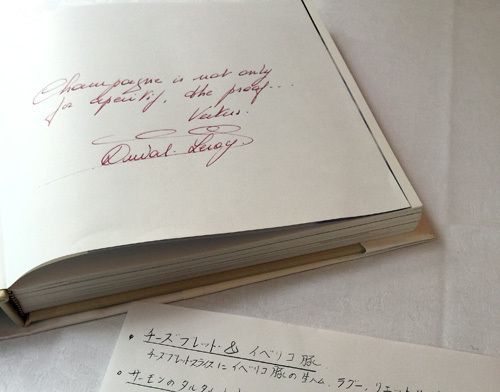 Champagne is not only
for aperitif, the proof...
Vertus.
Duval. Leroy.
• チーズフレット & イベリコ豚
チーズフレットスライスにイベリコ豚の生ハム、ラグー、リエット
• サーモンのタルタル